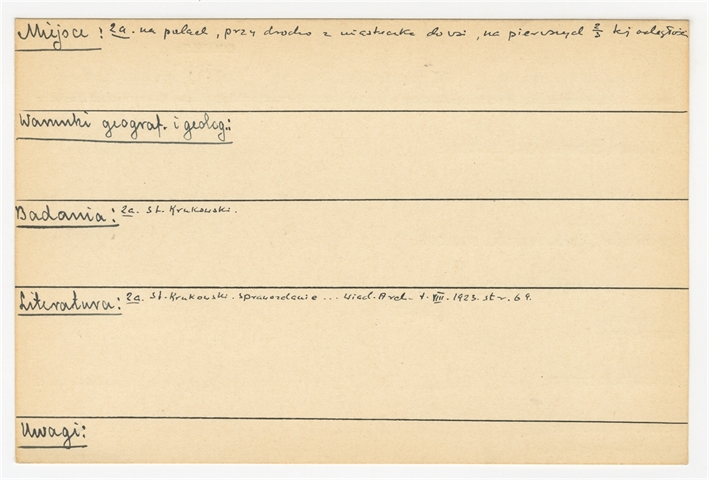 Miejsce: 2a. na polach, przy drodze z miasteczka do wsi, na pierwszych 2/3 tej odległości
Warunki geograf. i geolog.:
Badania: 2a. St. Krukowski.
Literatura: 2a. St. Krukowski. Sprawozdanie ... Wiad. Arch. t. VIII. 1923. str. 69.
Uwagi: